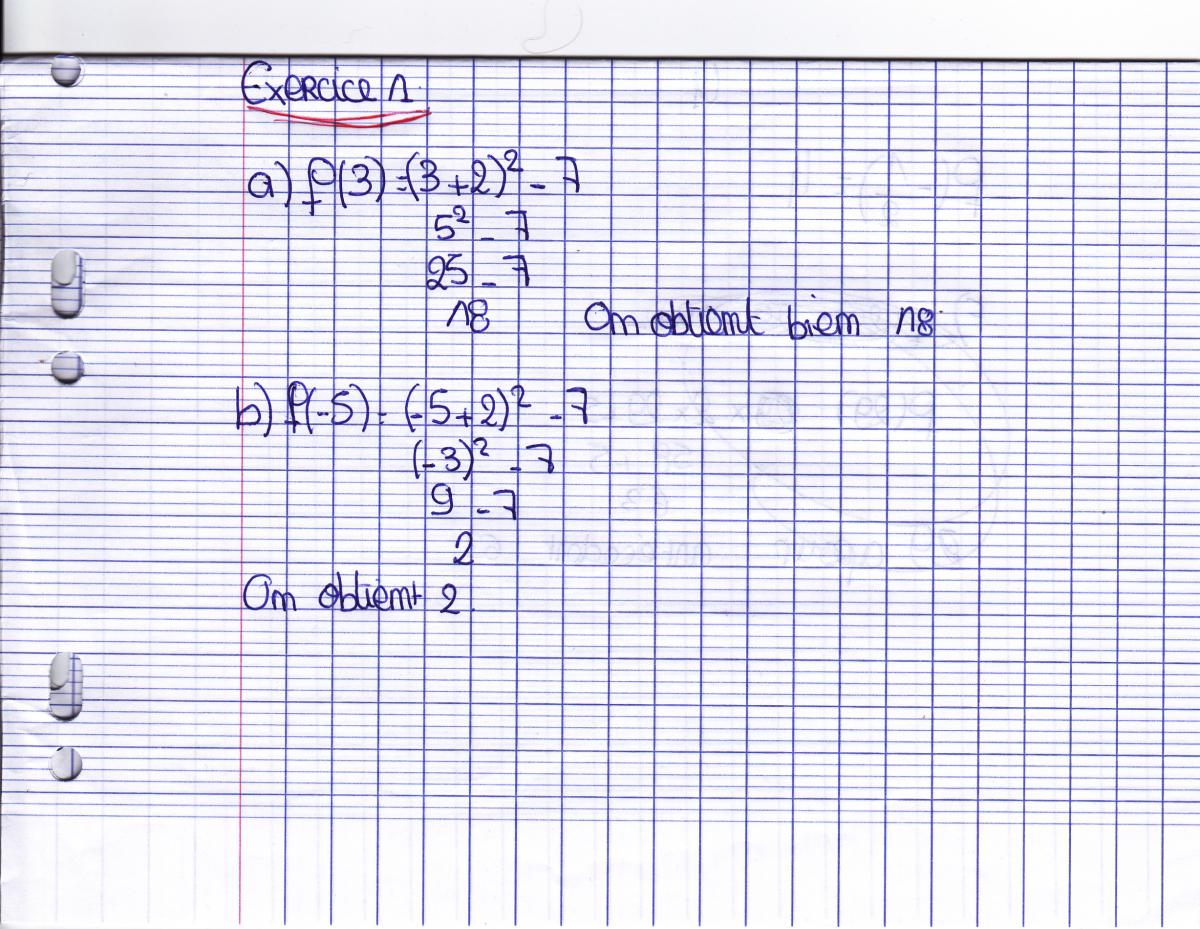 Exercice 1.
a) f(3) = (3+2)² - 7
5² - 7
25 - 7
18 On obtient bien 18
b) f(-5) = (-5+2)² - 7
(-3)² - 7
9 - 7
2
On obtient 2.